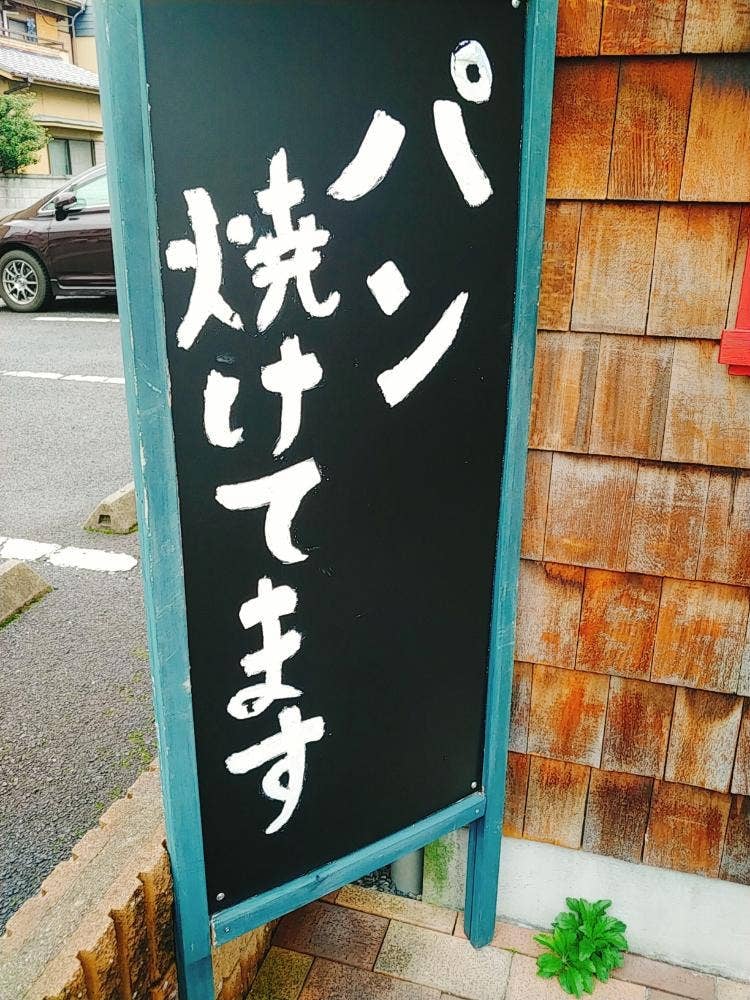 パン
焼けてます